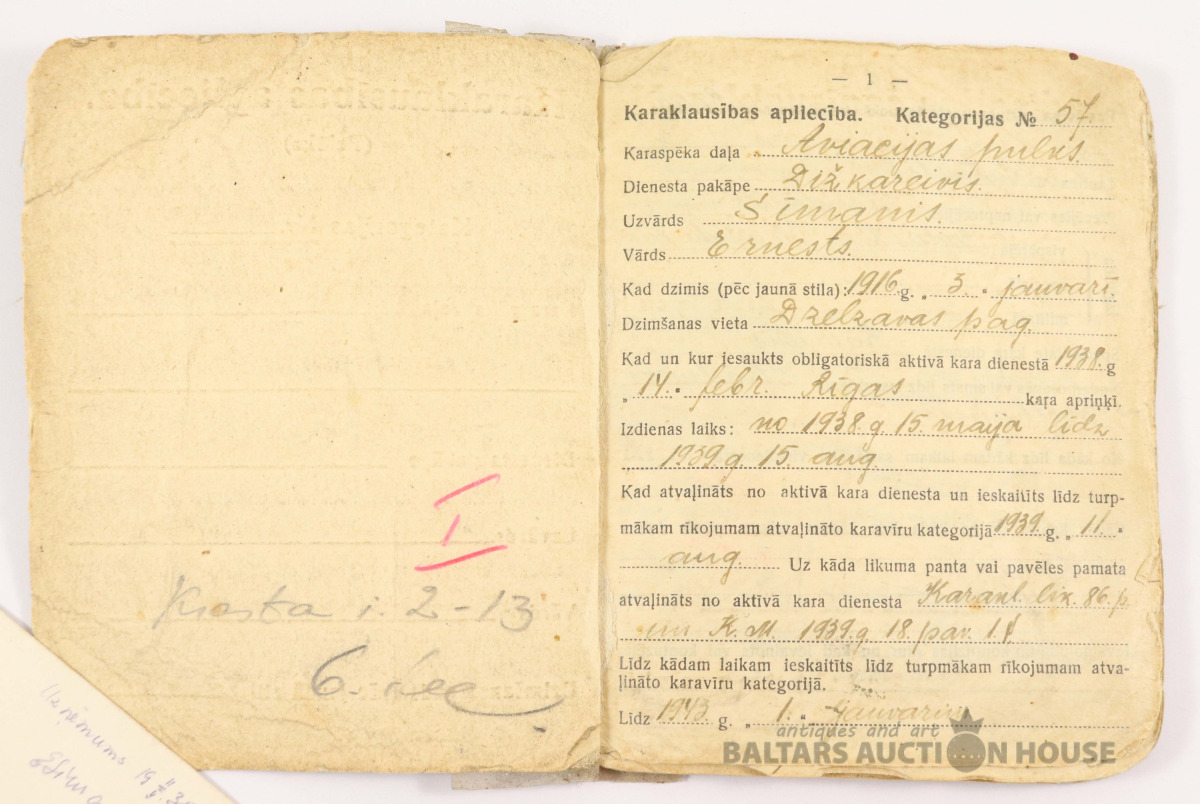 I
Krasta i. 2-13
6.
19 30
— 1 —
Karaklausības apliecība. Kategorijas № 57.
Karaspēka daļa Aviacijas pulks
Dienesta pakāpe Dižkareivis.
Uzvārds Sīmanis.
Vārds Ernests.
Kad dzimis (pēc jaunā stila): 1916. g. „ 3. " janvarī.
Dzimšanas vieta Dzelzavas pag.
Kad un kur iesaukts obligatoriskā aktīvā kara dienestā 1938. g
„ 14. " febr. Rīgas kaŗa apriņķī.
Izdienas laiks: no 1938. g. 15. maija līdz
1939. g. 15. aug.
Kad atvaļināts no aktīvā kara dienesta un ieskaitīts līdz turp-
mākam rīkojumam atvaļināto karavīru kategorijā 1939. g. „ 11. "
aug. Uz kāda likuma panta vai pavēles pamata
atvaļināts no aktīvā kara dienesta Karakl. lik. 86. p.
un K. M. 1939. g. 18. pav. 1.
Līdz kādam laikam ieskaitīts līdz turpmākam rīkojumam atva-
ļināto karavīru kategorijā.
Līdz 1943. g. „ 1. " janvarim
antiques and art
BALTARS AUCTION HOUSE